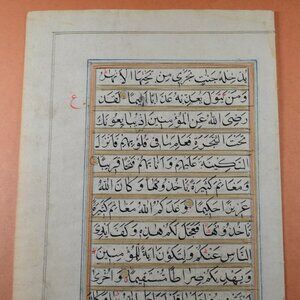 يدخله جنت تجري من تحتها الانهر
ومن يتول يعذبه عذابا اليما لقد
رضي الله عن المؤمنين اذ يبايعونك
تحت الشجرة فعلم ما في قلوبهم فانزل
السكينة عليهم واثابهم فتحا قريبا
ومغانم كثيرة ياخذونها وكان الله
عزيزا حكيما وعدكم الله مغانم
كثيرة تاخذونها فعجل لكم هذه وكف ايدي
الناس عنكم ولتكون اية للمؤمنين
ويهديكم صراطا مستقيما واخرى
ع